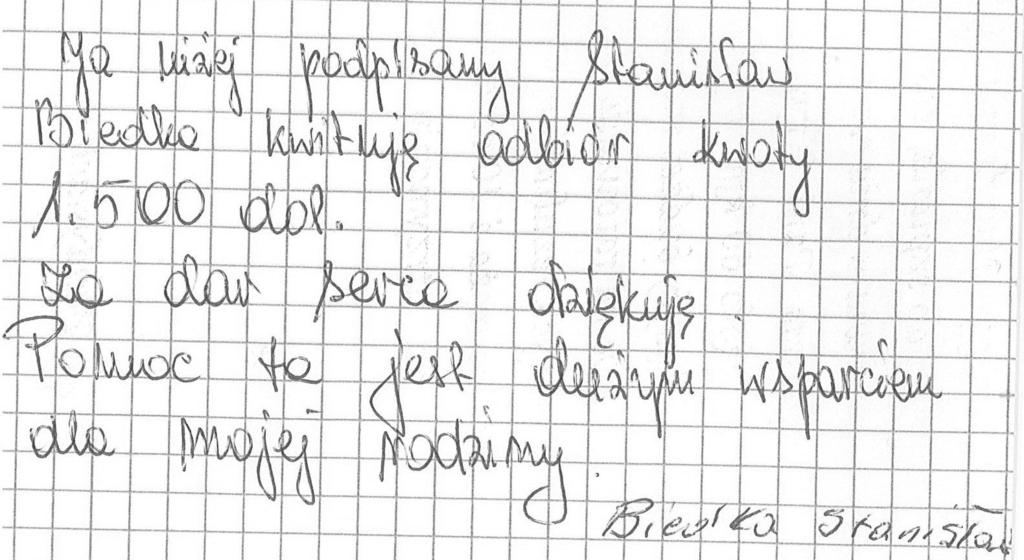 Ja niżej podpisany Stanisław
Biedka kwituję odbiór kwoty
1.500 dol.
Za dar serca dziękuję.
Pomoc ta jest dużym wsparciem
dla mojej rodziny.
Biedka Stanisław